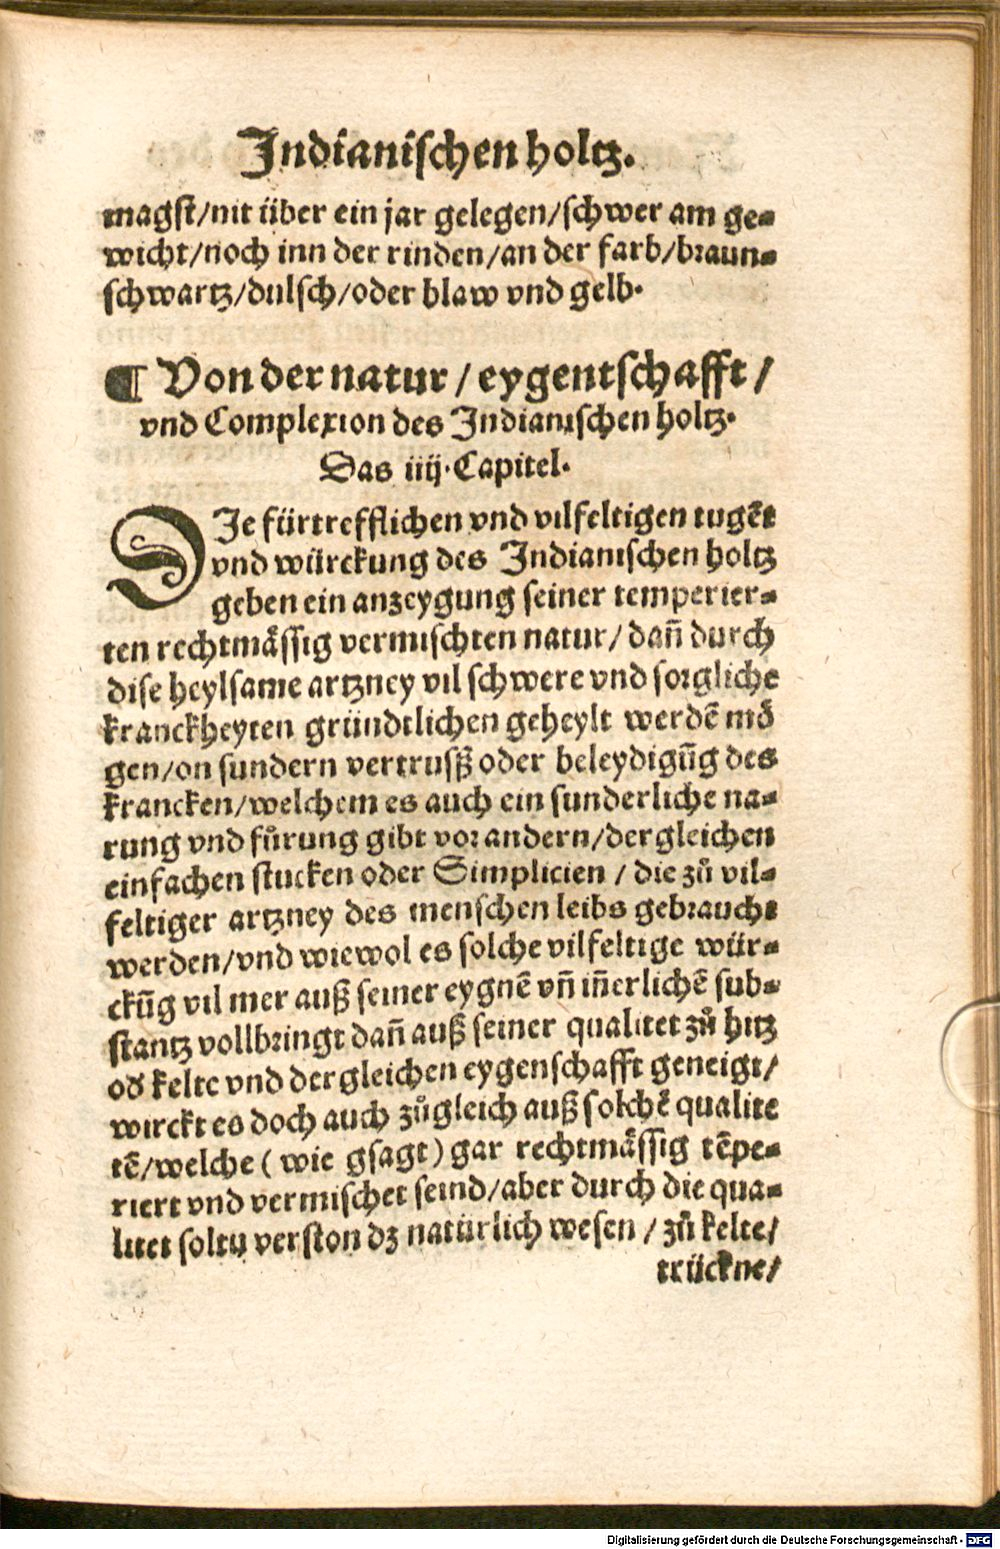 Indianischen holtz.
magst/nit über ein jar gelegen/schwer am ge⸗
wicht/noch inn der rinden/an der farb/braun⸗
schwartz/dulsch/oder blaw vnd gelb.
¶ Von der natur / eygentschafft /
vnd Complexion des Indianischen holtz.
Das iiij. Capitel.
DIe fürtrefflichen vnd vilfeltigen tugẽt
vnd würckung des Indianischen holtz
geben ein anzeygung seiner temperier⸗
ten rechtmaͤssig vermischten natur/ dañ durch
dise heylsame artzney vil schwere vnd sorgliche
kranckheyten gründtlichen geheylt werdẽ moͤ
gen/on sundern vertrusß oder beleydigũg des
krancken/welchem es auch ein sunderliche na⸗
rung vnd fuͤrung gibt vor andern/dergleichen
einfachen stucken oder Simplicien / die zů vil⸗
feltiger artzney des menschen leibs gebraucht
werden/vnd wiewol es solche vilfeltige wür⸗
ckũg vil mer auß seiner eygnẽ vñ iñerlichẽ sub⸗
stantz vollbringt dañ auß seiner qualitet zů hitz
od̛ kelte vnd dergleichen eygenschafft geneigt/
wirckt es doch auch zůgleich auß solchẽ qualite
tẽ/welche ( wie gsagt ) gar rechtmaͤssig tẽpe⸗
riert vnd vermischet seind/aber durch die qua⸗
litet soltu verston dz natürlich wesen / zů kelte/
trückne/
Digitalisierung gefördert durch die Deutsche Forschungsgemeinschaft - DFG